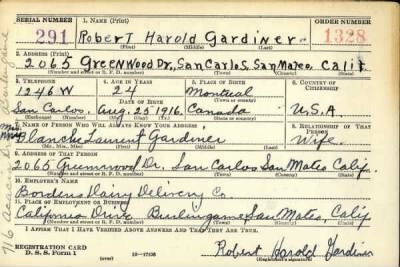 SERIAL NUMBER 1. NAME (Print) ORDER NUMBER
291 Robert Harold Gardiner 1328
(First) (Middle) (Last)
2. ADDRESS (Print)
2065 Greenwood Dr., San Carlos, San Mateo, Calif.
(Number and street or R. F. D. number) (Town) (County) (State)
3. TELEPHONE 4. AGE IN YEARS 5. PLACE OF BIRTH 6. COUNTRY OF CITIZENSHIP
1246 W 24 Montreal
(Town or county)
DATE OF BIRTH
San Carlos Aug. 25, 1916 Canada U.S.A.
(Exchange) (Number) (Mo.) (Day) (Yr.) (State or country)
7. NAME OF PERSON WHO WILL ALWAYS KNOW YOUR ADDRESS 8. RELATIONSHIP OF THAT PERSON
Mrs. Blanche Laurent Gardiner Wife
(Mr., Mrs., Miss) (First) (Middle) (Last)
9. ADDRESS OF THAT PERSON
2065 Greenwood Dr. San Carlos San Mateo Calif.
(Number and street or R. F. D. number) (Town) (County) (State)
10. EMPLOYER'S NAME
Bordens Dairy Delivery Co
11. PLACE OF EMPLOYMENT OR BUSINESS
California Drive Burlingame, San Mateo, Calif
(Number and street or R. F. D. number) (Town) (County) (State)
I AFFIRM THAT I HAVE VERIFIED ABOVE ANSWERS AND THAT THEY ARE TRUE.
REGISTRATION CARD
D. S. S. Form 1 (over) 16-17105 Robert Harold Gardiner
(Registrant's signature)
716 Acacia Dr. Burlingame